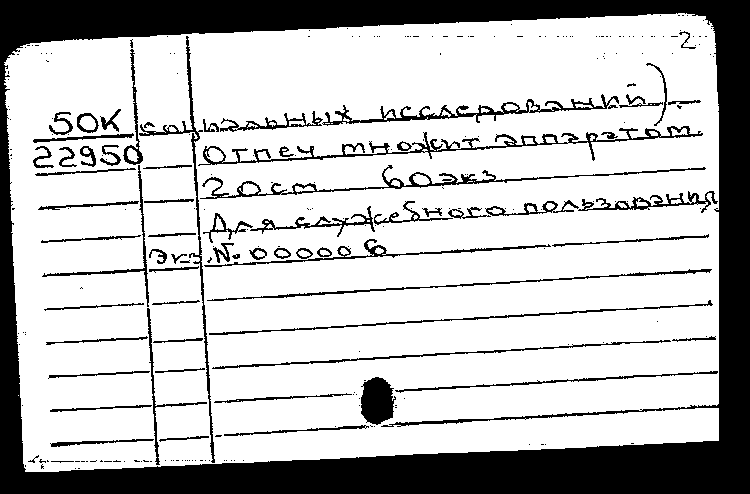 2
50К социальных исследований).
22950 Отпеч. множит. аппаратом.
20см 60экз.
Для служебного пользования.
Экз.№ 000006